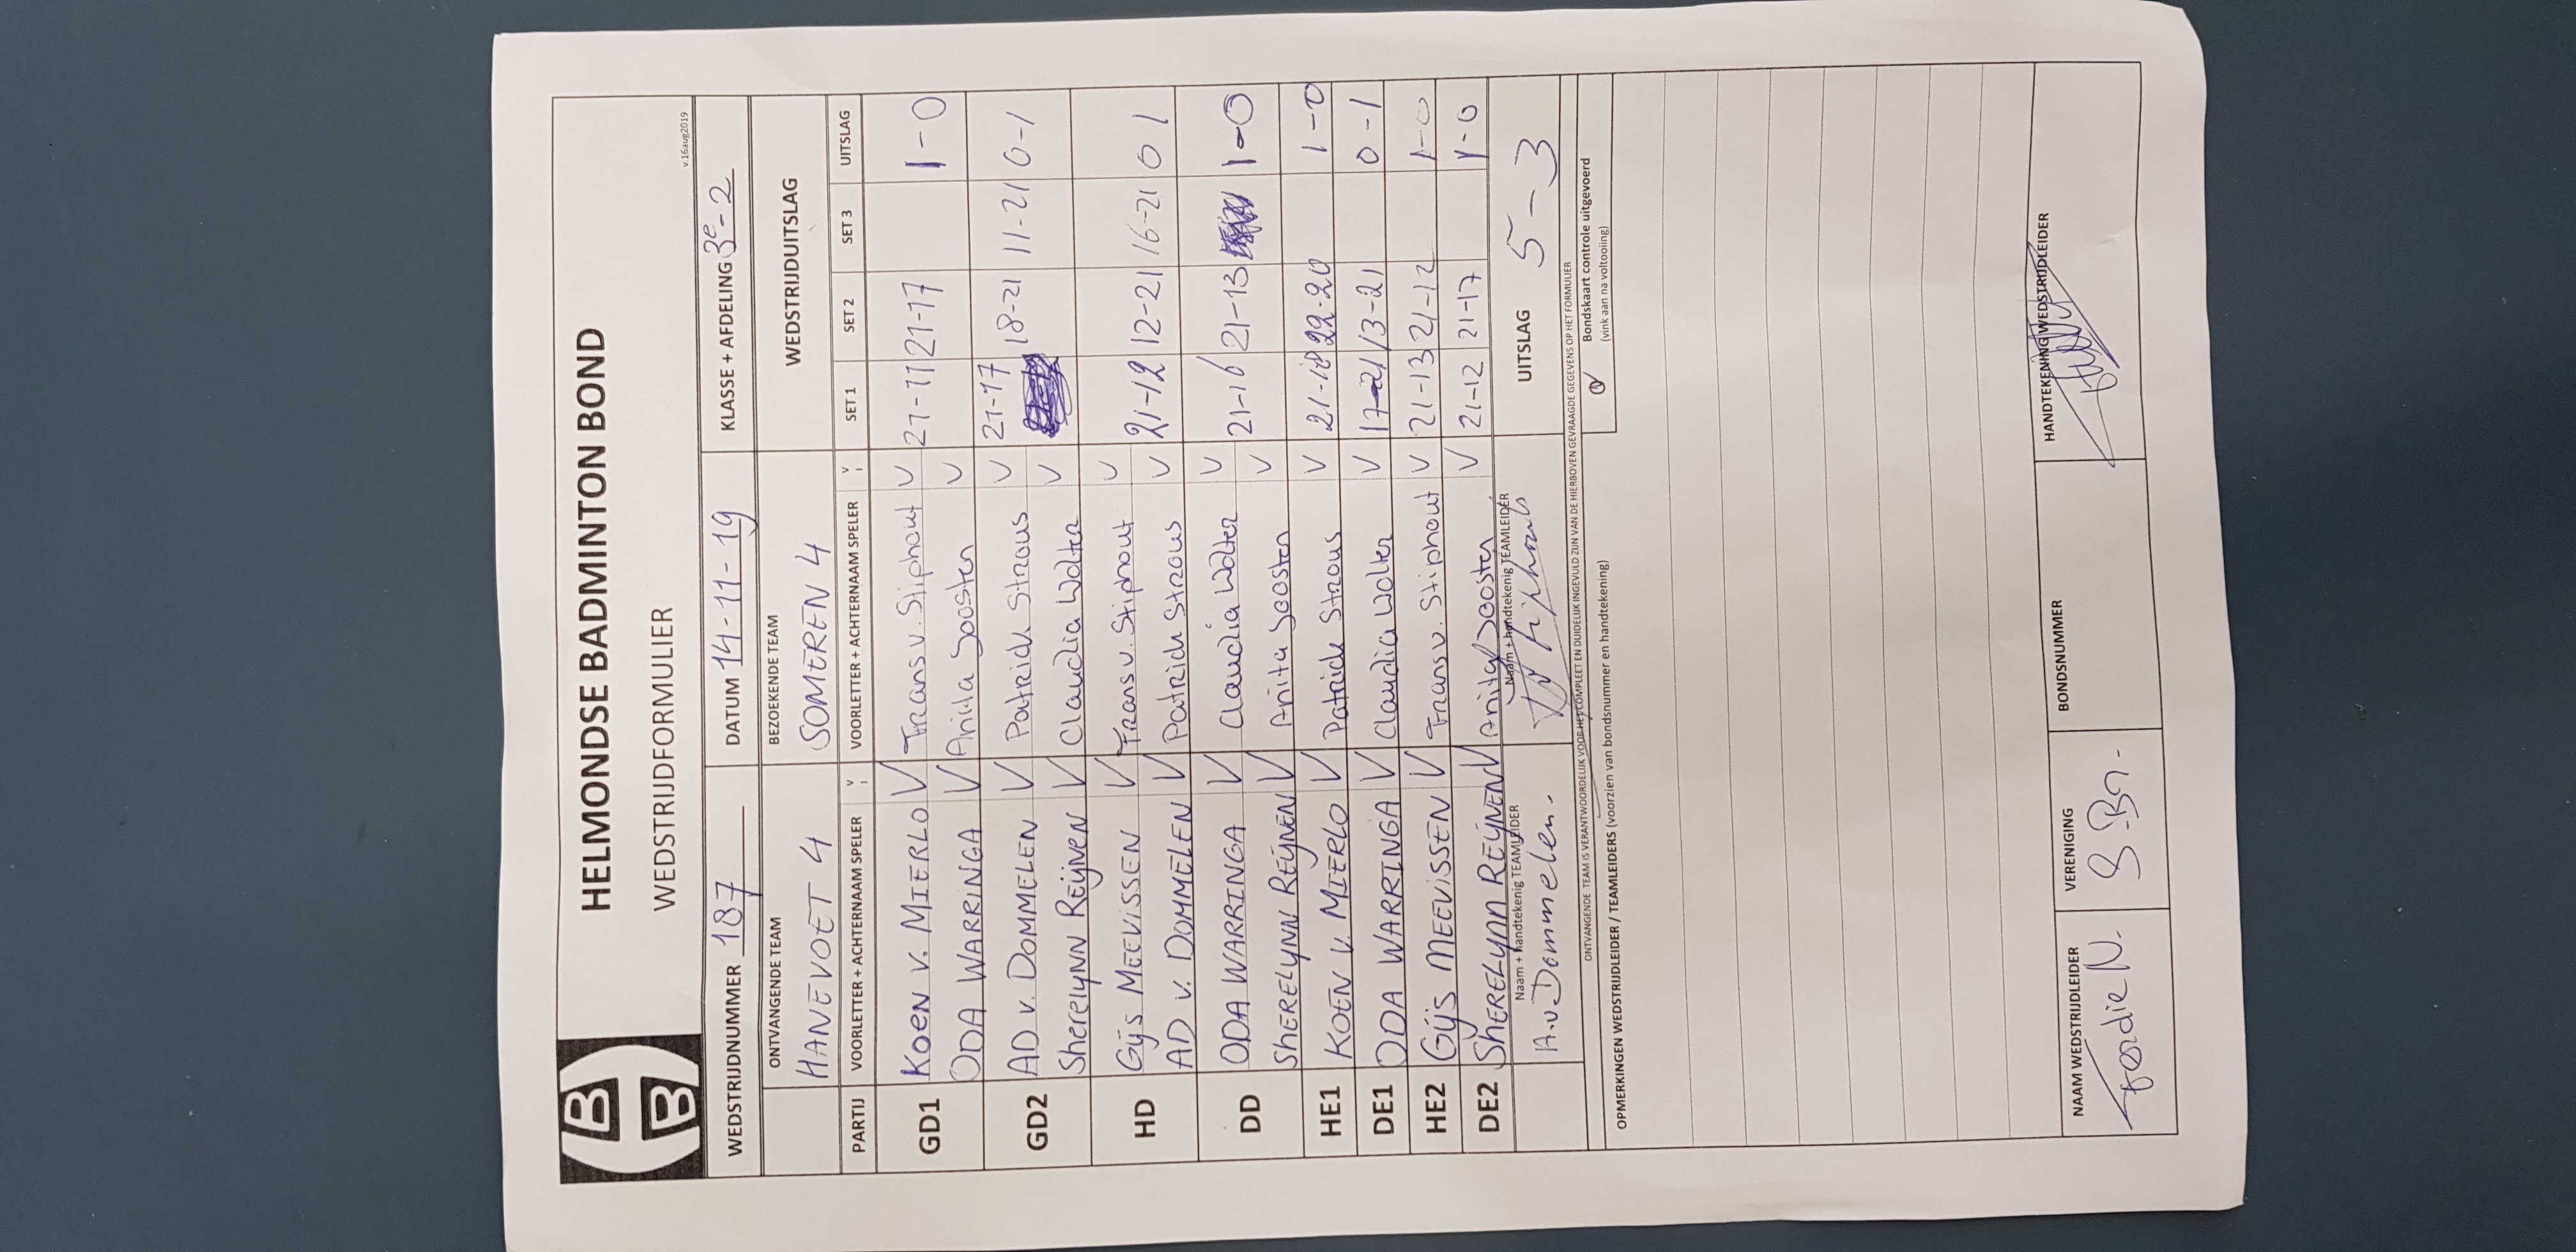 HELMONDSE BADMINTON BOND
WEDSTRIJDFORMULIER
v.16aug2019
WEDSTRIJDNUMMER 187 DATUM 14-11-19 KLASSE + AFDELING 3e-2
ONTVANGENDE TEAM BEZOEKENDE TEAM WEDSTRIJDUITSLAG
HANEVOET 4 SOMEREN 4
PARTIJ VOORLETTER + ACHTERNAAM SPELER V VOORLETTER + ACHTERNAAM SPELER V SET 1 SET 2 SET 3 UITSLAG
GD1 KOEN v. MIERLO V Frans v. Stiphout V 21-11 21-17 1-0
ODA WARRINGA V Anita Joosten V
GD2 AD v. DOMMELEN V Patrick Straus V 21-17 18-21 11-21 0-1
Sherelynn Reijnen V Claudia Wolter V
HD Gijs MEEVISSEN V Frans v. Stiphout V 21-12 12-21 16-21 0 1
AD v. DOMMELEN V Patrick Straus V
DD ODA WARRINGA V Claudia Wolter V 21-16 21-13 1-0
SHERELYNN REIJNEN V Anita Joosten V
HE1 KOEN v. MIERLO V Patrick Straus V 21-18 22-20 1-0
DE1 ODA WARRINGA V Claudia Wolter V 17-21 13-21 0-1
HE2 Gijs MEEVISSEN V Frans v. Stiphout V 21-13 21-12 1-0
DE2 SHERELYNN REIJNEN V Anita Joosten V 21-12 21-17 1-0
Naam + handtekenig TEAMLEIDER Naam + handtekenig TEAMLEIDER UITSLAG 5-3
A.v. Dommelen.
ONTVANGENDE TEAM IS VERANTWOORDELIJK VOOR HET COMPLEET EN DUIDELIJK INGEVULD ZIJN VAN DE HIERBOVEN GEVRAAGDE GEGEVENS OP HET FORMULIER
Bondskaart controle uitgevoerd
(vink aan na voltooiing)
OPMERKINGEN WEDSTRIJDLEIDER / TEAMLEIDERS (voorzien van bondsnummer en handtekening)
NAAM WEDSTRIJDLEIDER VERENIGING BONDSNUMMER HANDTEKENING WEDSTRIJDLEIDER